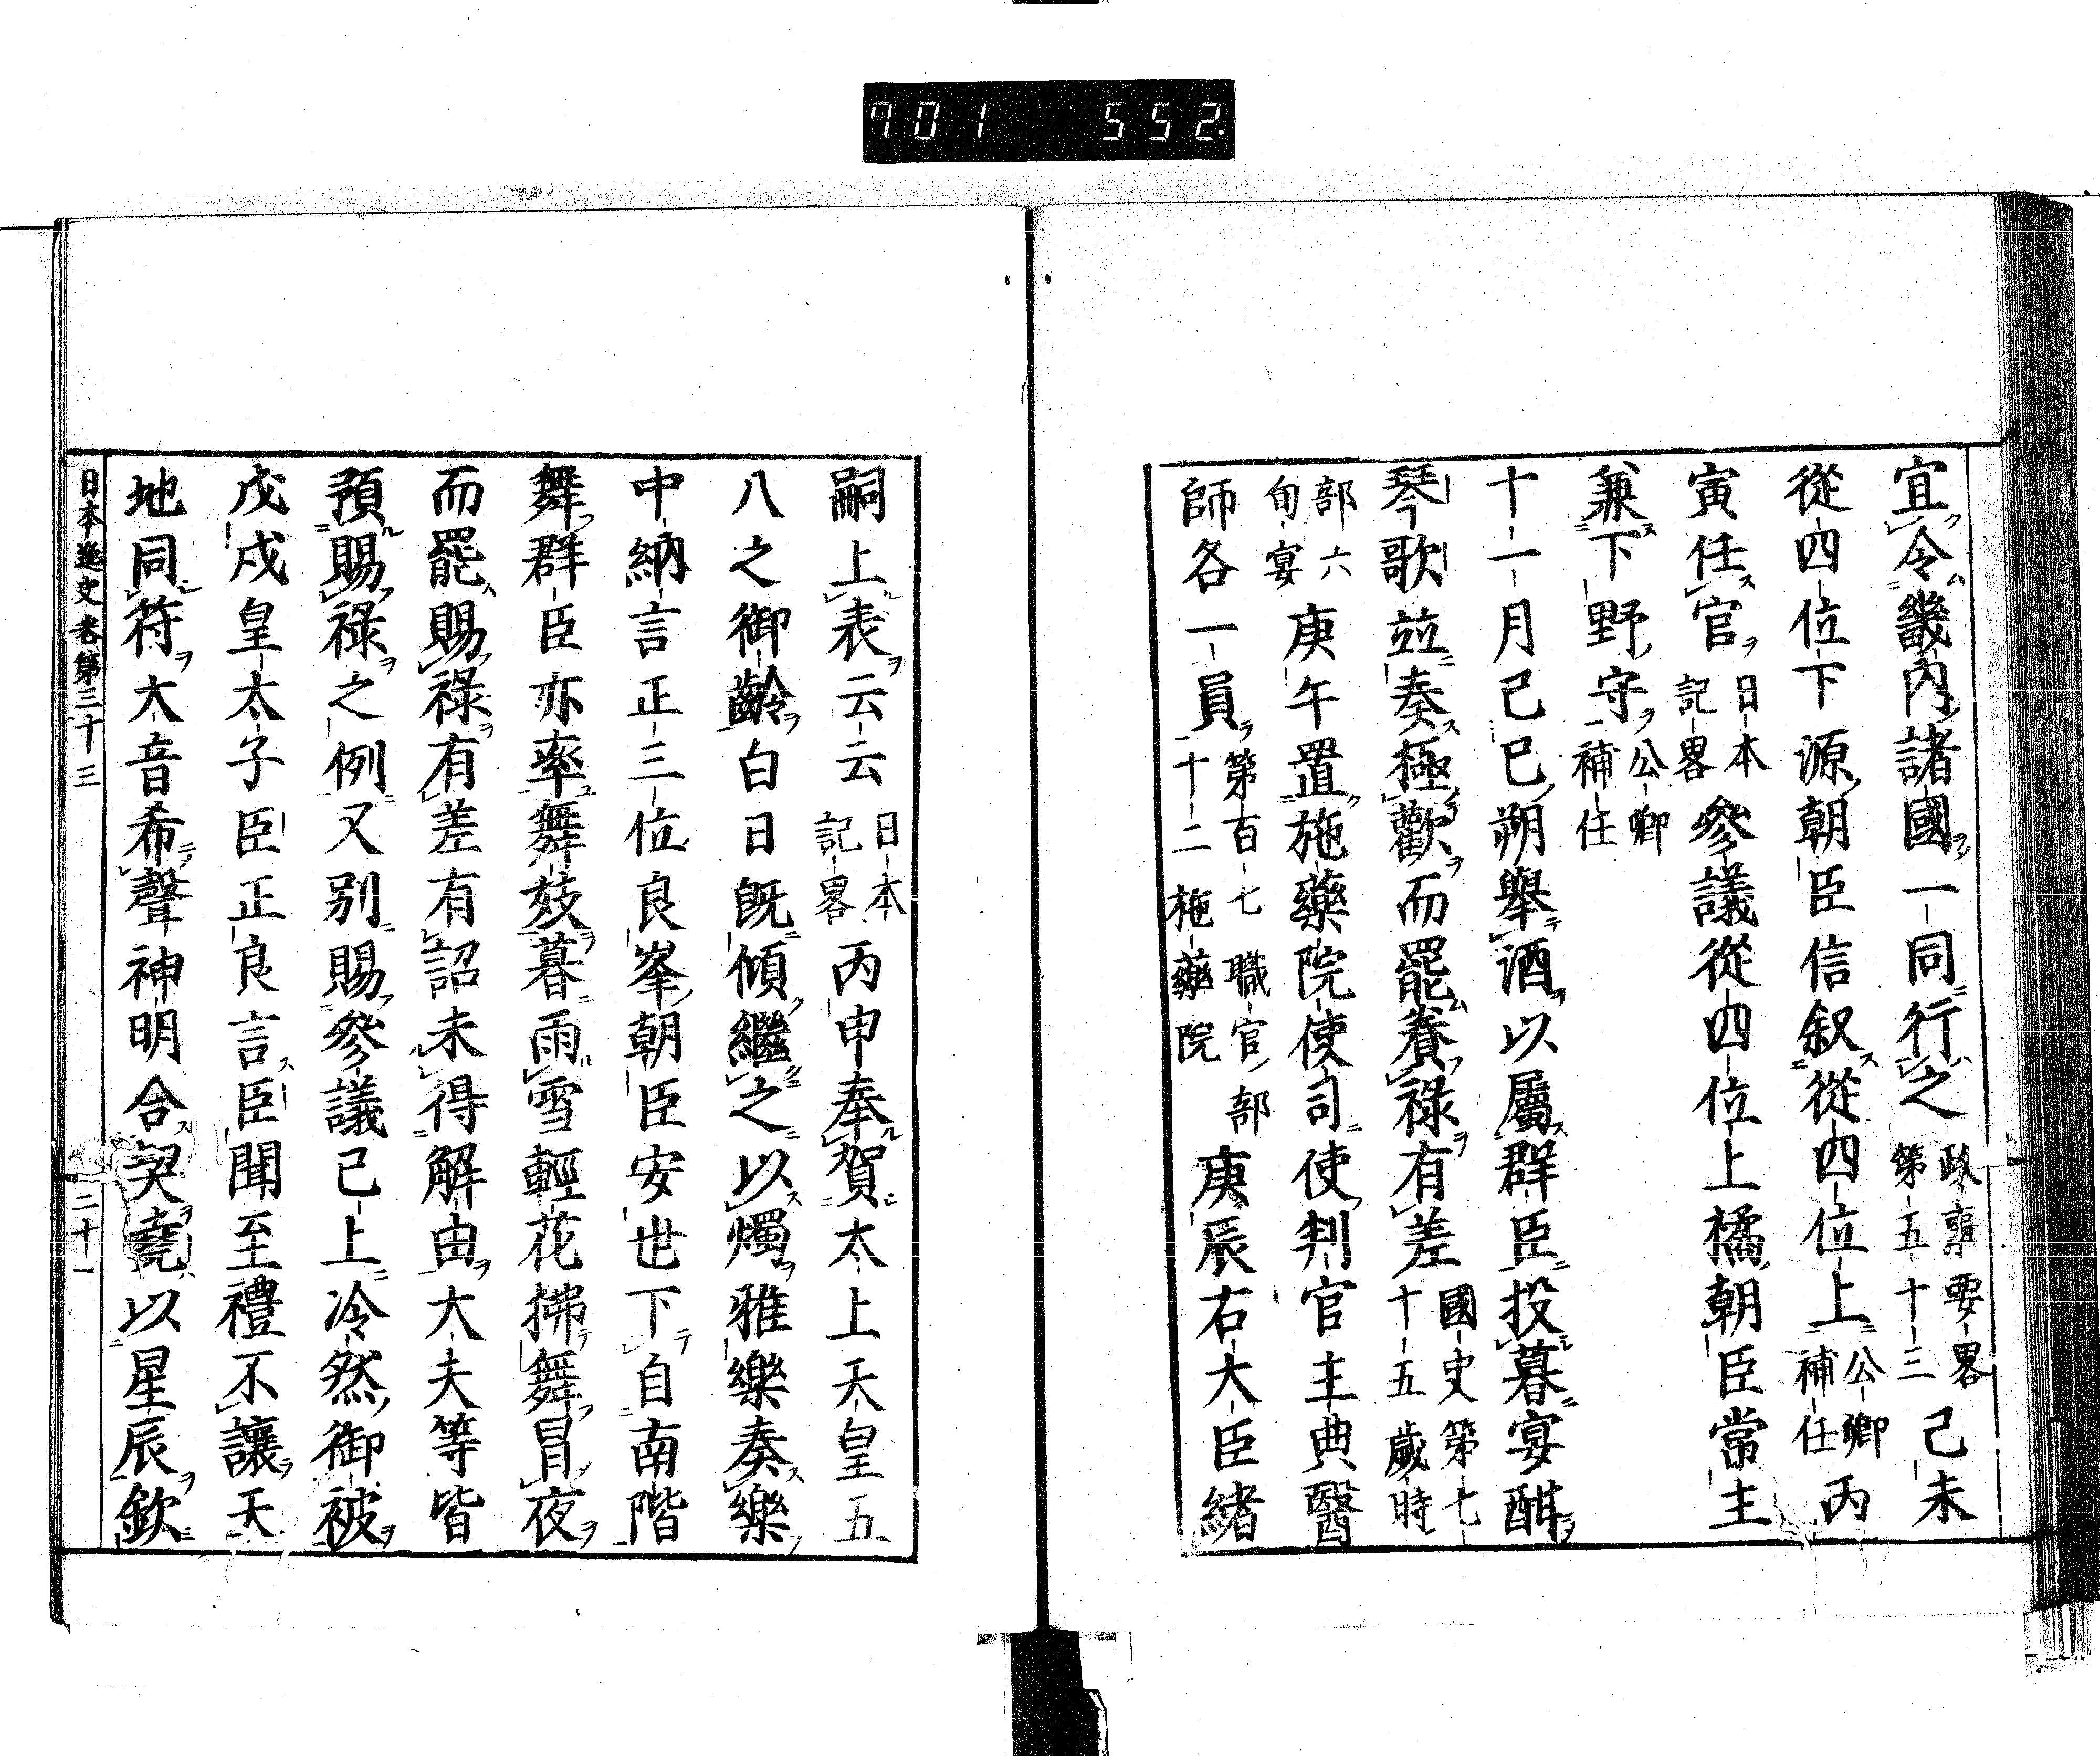 701 552.
宜令畿內諸國一同行之 政事要畧第五十三 己未
從四位下源朝臣信叙從四位上 公卿補任 丙
寅任官 日本記畧 參議從四位上橘朝臣常主
兼下野守 公卿補任
十一月己巳朔舉酒以屬群臣投暮宴酣
琴歌竝奏極歡而罷賚祿有差 國史第七十五歲時
部六旬宴 庚午置施藥院使司使判官主典醫
師各一員 第百七職官部十二施藥院 庚辰右大臣緒
嗣上表云云 日本記畧 丙申奉賀太上天皇五
八之御齡白日既傾繼之以燭雅樂奏樂
中納言正三位良峯朝臣安世下自南階
舞群臣亦率舞妓暮雨雪輕花拂舞冐夜
而罷賜祿有差有詔未得解由大夫等皆
預賜祿之例又別賜參議已上冷然御被
戊戌皇太子臣正良言臣聞至禮不讓天
地同符大音希聲神明合契堯以星辰欽
日本逸史卷第三十三 二十一